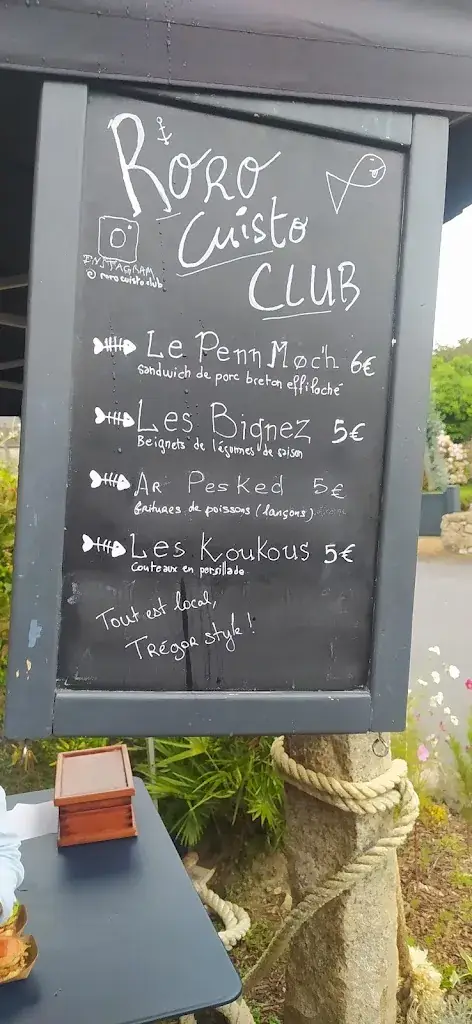 RoRo
Cuisto
CLUB
INSTAGRAM
@ rorocuistoclub
Le Penn Moc'h 6€
Sandwich de porc breton effiloché
Les Bignez 5€
Beignets de légumes de saison
AR PesKed 5€
fritures de poissons (lançons)
Les Koukous 5€
Couteaux en persillade
Tout est local,
Trégor style !